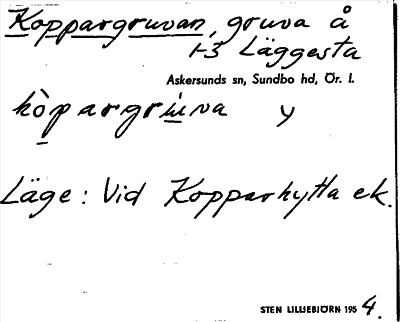 Koppargruvan, gruva å
1-3 Läggesta
Askersunds sn, Sundbo hd, Ör. l.
kòpargrùva y
Läge: Vid Kopparhytta ek.
STEN LILLIEBJÖRN 1954.